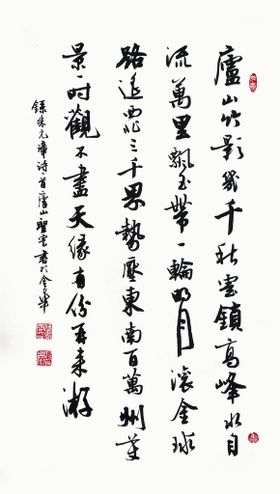 廬山竹影幾千秋雲鎖高峰水自
流萬里飄玉帶一輪明月滾金球
路遥西北三千界勢壓東南百萬州美
景一时觀不盡天緣有份再来游
錄朱元璋诗首廬山聖雲書於